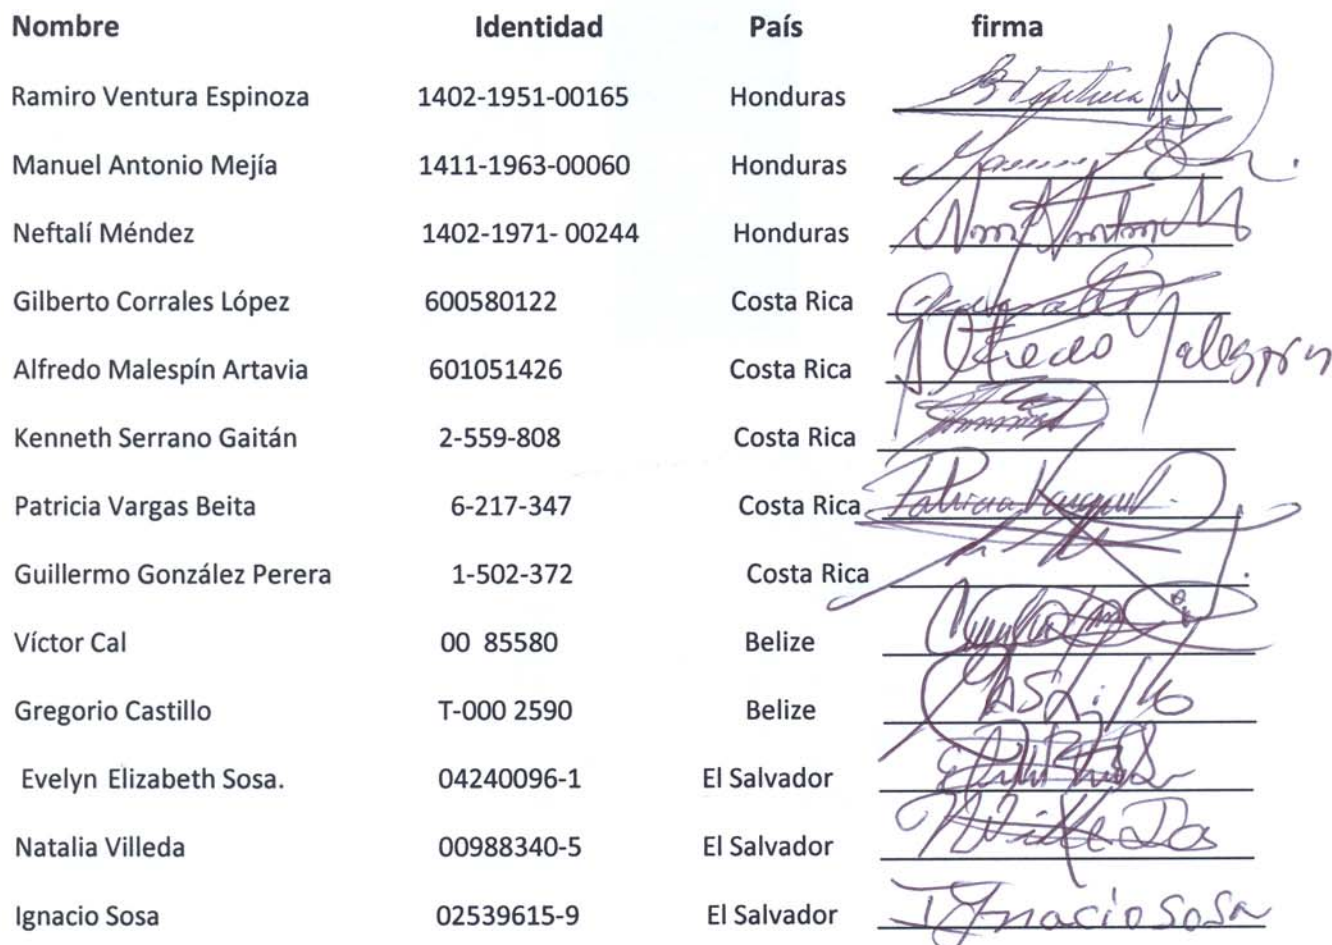 Nombre Identidad País firma
Ramiro Ventura Espinoza 1402-1951-00165 Honduras
Manuel Antonio Mejía 1411-1963-00060 Honduras
Neftalí Méndez 1402-1971- 00244 Honduras
Gilberto Corrales López 600580122 Costa Rica
Alfredo Malespín Artavia 601051426 Costa Rica Alfredo Malespín
Kenneth Serrano Gaitán 2-559-808 Costa Rica
Patricia Vargas Beita 6-217-347 Costa Rica Patricia
Guillermo González Perera 1-502-372 Costa Rica
Víctor Cal 00 85580 Belize
Gregorio Castillo T-000 2590 Belize
Evelyn Elizabeth Sosa. 04240096-1 El Salvador
Natalia Villeda 00988340-5 El Salvador
Ignacio Sosa 02539615-9 El Salvador Ignacio Sosa